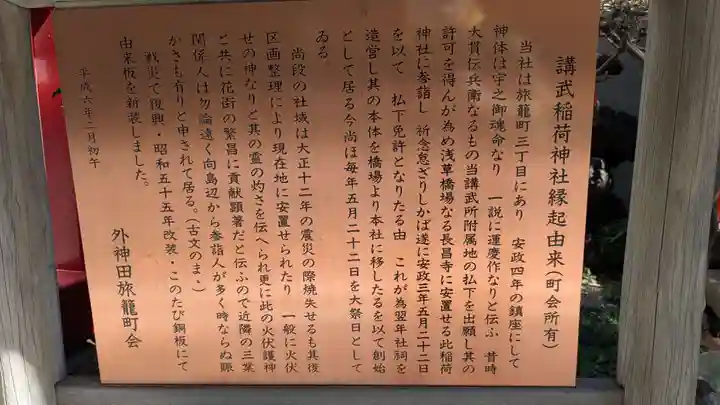 講武稲荷神社縁起由来(町会所有)
当社は旅籠町三丁目にあり　安政四年の鎮座にして
神体は宇之御魂命なり　一説に運慶作なりと伝ふ　昔時
大貫伝兵衛なるもの当講武所附属地の払下を出願し其の
許可を得んが為め浅草橋場なる長昌寺に安置せる此稲荷
神社に参詣し　祈念怠ざりしかば遂に安政三年五月二十二日
を以て　払下免許となりたる由　これが為翌年社祠を
造営し其の本体を橋場より本社に移したるを以て創始
として居る今尚ほ毎年五月二十二日を大祭日として
ゐる
尚段の社域は大正十二年の震災の際焼失せるも其後
区画整理により現在地に安置せられたり　一般に火伏
せの神なりと其の霊の灼さを伝へられ更に此の火伏護神
と共に花街の繁昌に貢献顕著だと伝ふので近隣の三業
関係人は勿論遠く向島辺から参詣人が多く時ならぬ賑
かさも有りと申されて居る。(古文のま・)
戦災で復興・昭和五十五年改装・このたび銅板にて
由来板を新装しました。
平成六年二月初午
外神田旅籠町会